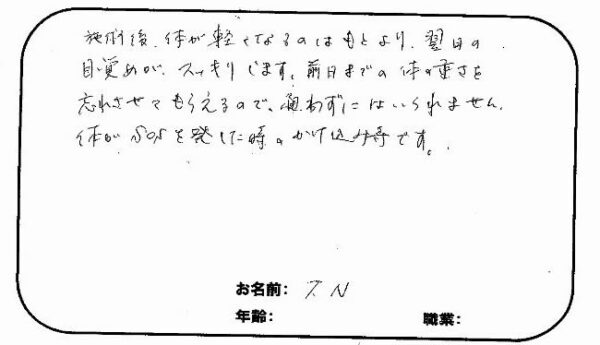 施術後、体が軽くなるのはもとより、翌日の
目覚めが、スッキリします。前日までの体の重さを
忘れさせてもらえるので、通わずにはいられません。
体がSOSを発した時のかけ込み寺です。
お名前: T N
年齢:
職業: